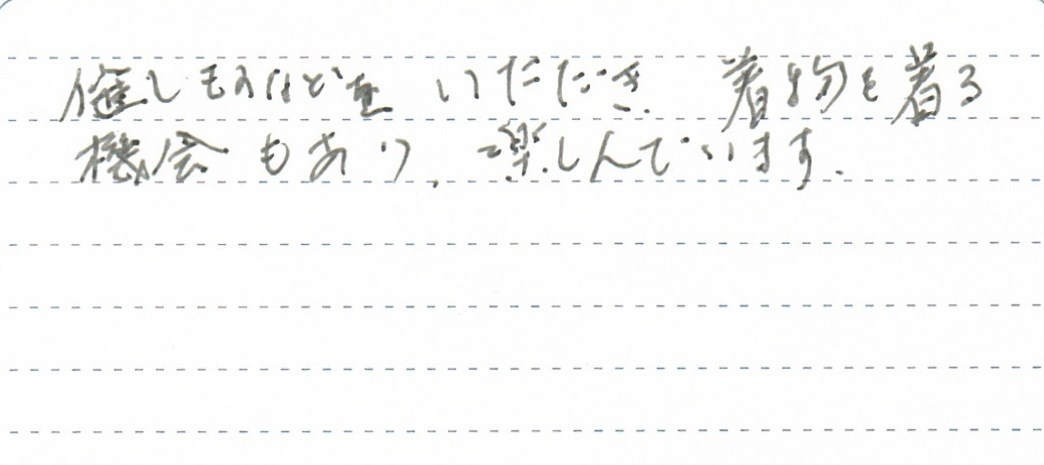 催しものなどを いただき 着物を着る
機会もあり、楽しんでいます.